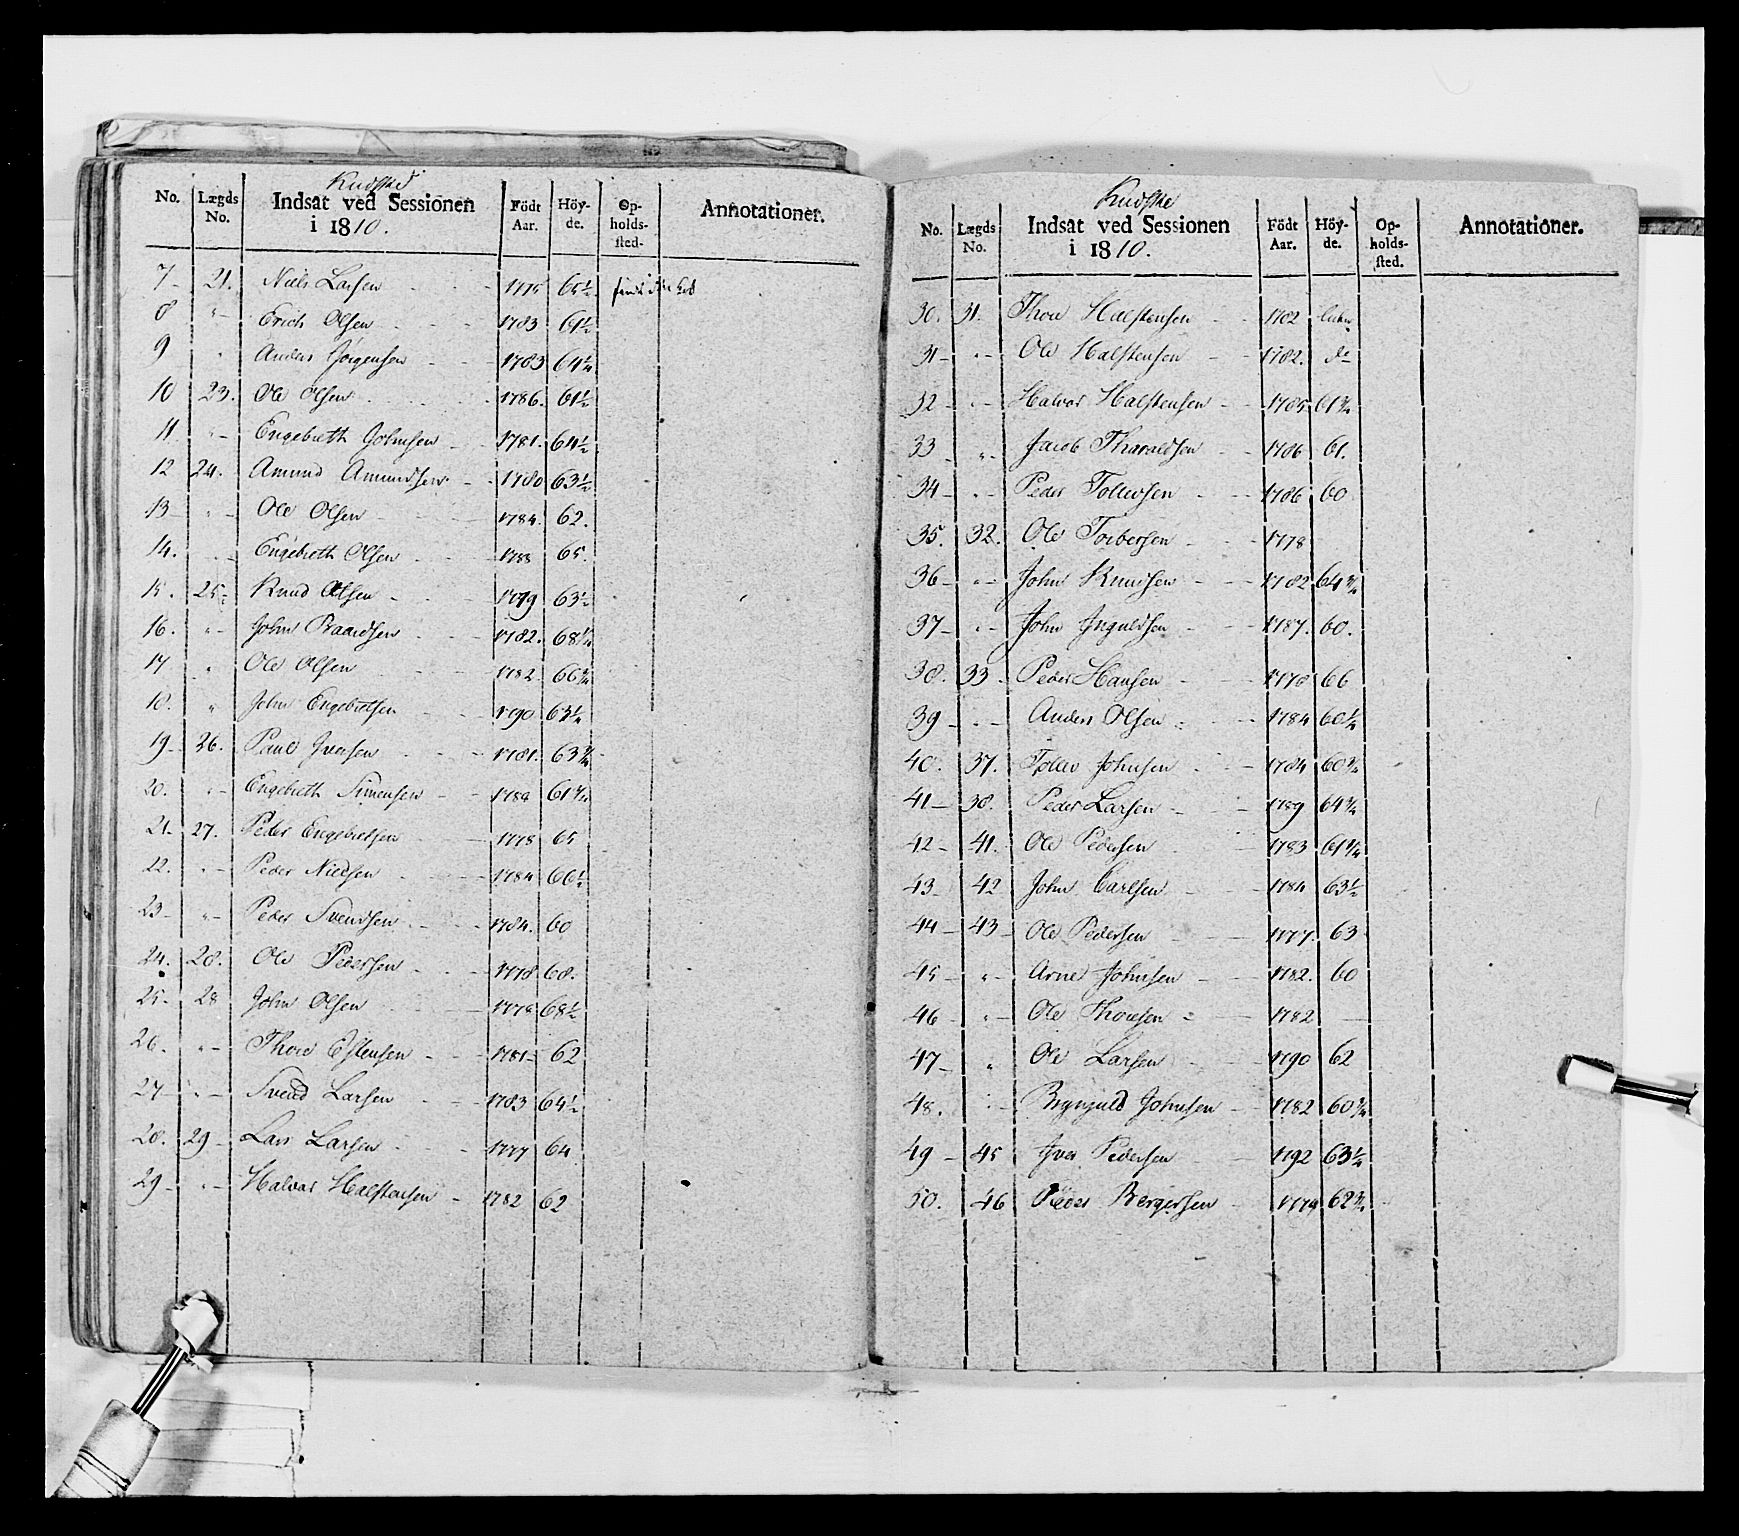 No. Lægds No. Indsat ved Sessionen i 1810. Födt Aar. Höyde. Opholdssted. Annotationer.
7 - 21. Niels Larsen - 1775 65½
8 " - Erich Olsen - 1783 61½
9 " Anders Jörgensen - 1783 64¼
10 23. Ole Olsen - 1786. 61½
11 " - Engebreth Johnsen - 1781. 64½
12 24. Amund Amundsen - 1780 63½
13 - " - Ole Olsen - 1784. 62.
14. " - Engebreth Olsen - 1788 65.
15. 25 - Knud Olsen - 1779 63½
16. " - John Baardsen - 1782. 68¼
17 " Ole Olsen - 1782 66¾
18. " John Engebretsen - 1790 63¼
19 - 26. Paul Iversen - 1781. 63¾
20. " - Engebreth Simensen - 61¾
21 - 27. Peder Engebretsen - 1778 65
22. " - Peder Nielsen - 1784 66½
23 - " - Peder Svendsen - 1784. 60
24. 28. Ole Pedersen - 1778. 68.
25 - 28 John Olsen - 1778 68½
26. " - Thore Estensen - 1781 - 62
27 - " - Svend Larsen - 1783 64½
28. 29 - Lars Larsen - 1777 64
29 - " - Halvor Halstensen - 1782 62
No. Lægds No. Indsat ved Sessionen i 1810. Födt Aar. Höyde. Opholdssted. Annotationer.
30. 31. Thore Halstensen - 1782
31 - " - Ole Halstensen - 1782. do
32 - " - Halvor Halstensen - 1785 61¾
33 " Jacob Tharaldsen - 1786 61.
34 - " - Peder Tollevsen - 1786 60
35. 32. Ole Torbersen - 1778
36 - " - John Knudsen - 1782 64¾
37 - " - John Inguldsen - 1787. 60.
38. 33. Peder Hansen - 1778 66
39 - " - Anders Olsen - 1784 60¼
40. 37. Tollev Johnsen - 1784 60¾
41 - 38. Peder Larsen - 1789 64¾
42 - 41. Ole Pedersen - 1783 61¾
43 - 42 John Carlsen - 1784 63½
44 - 43 - Ole Pedersen - 1777. 63
45 - " - Arne Johnsen - 1782. 60
46 - " - Ole Thoresen - 1782 -
47 - " Ole Larsen - 1790 62
48. " - Johnsen - 1782 60¾
49 - 45 Iver Pedersen - 1792 63¼
50. 46 Peder Bergersen - 1779 62¾